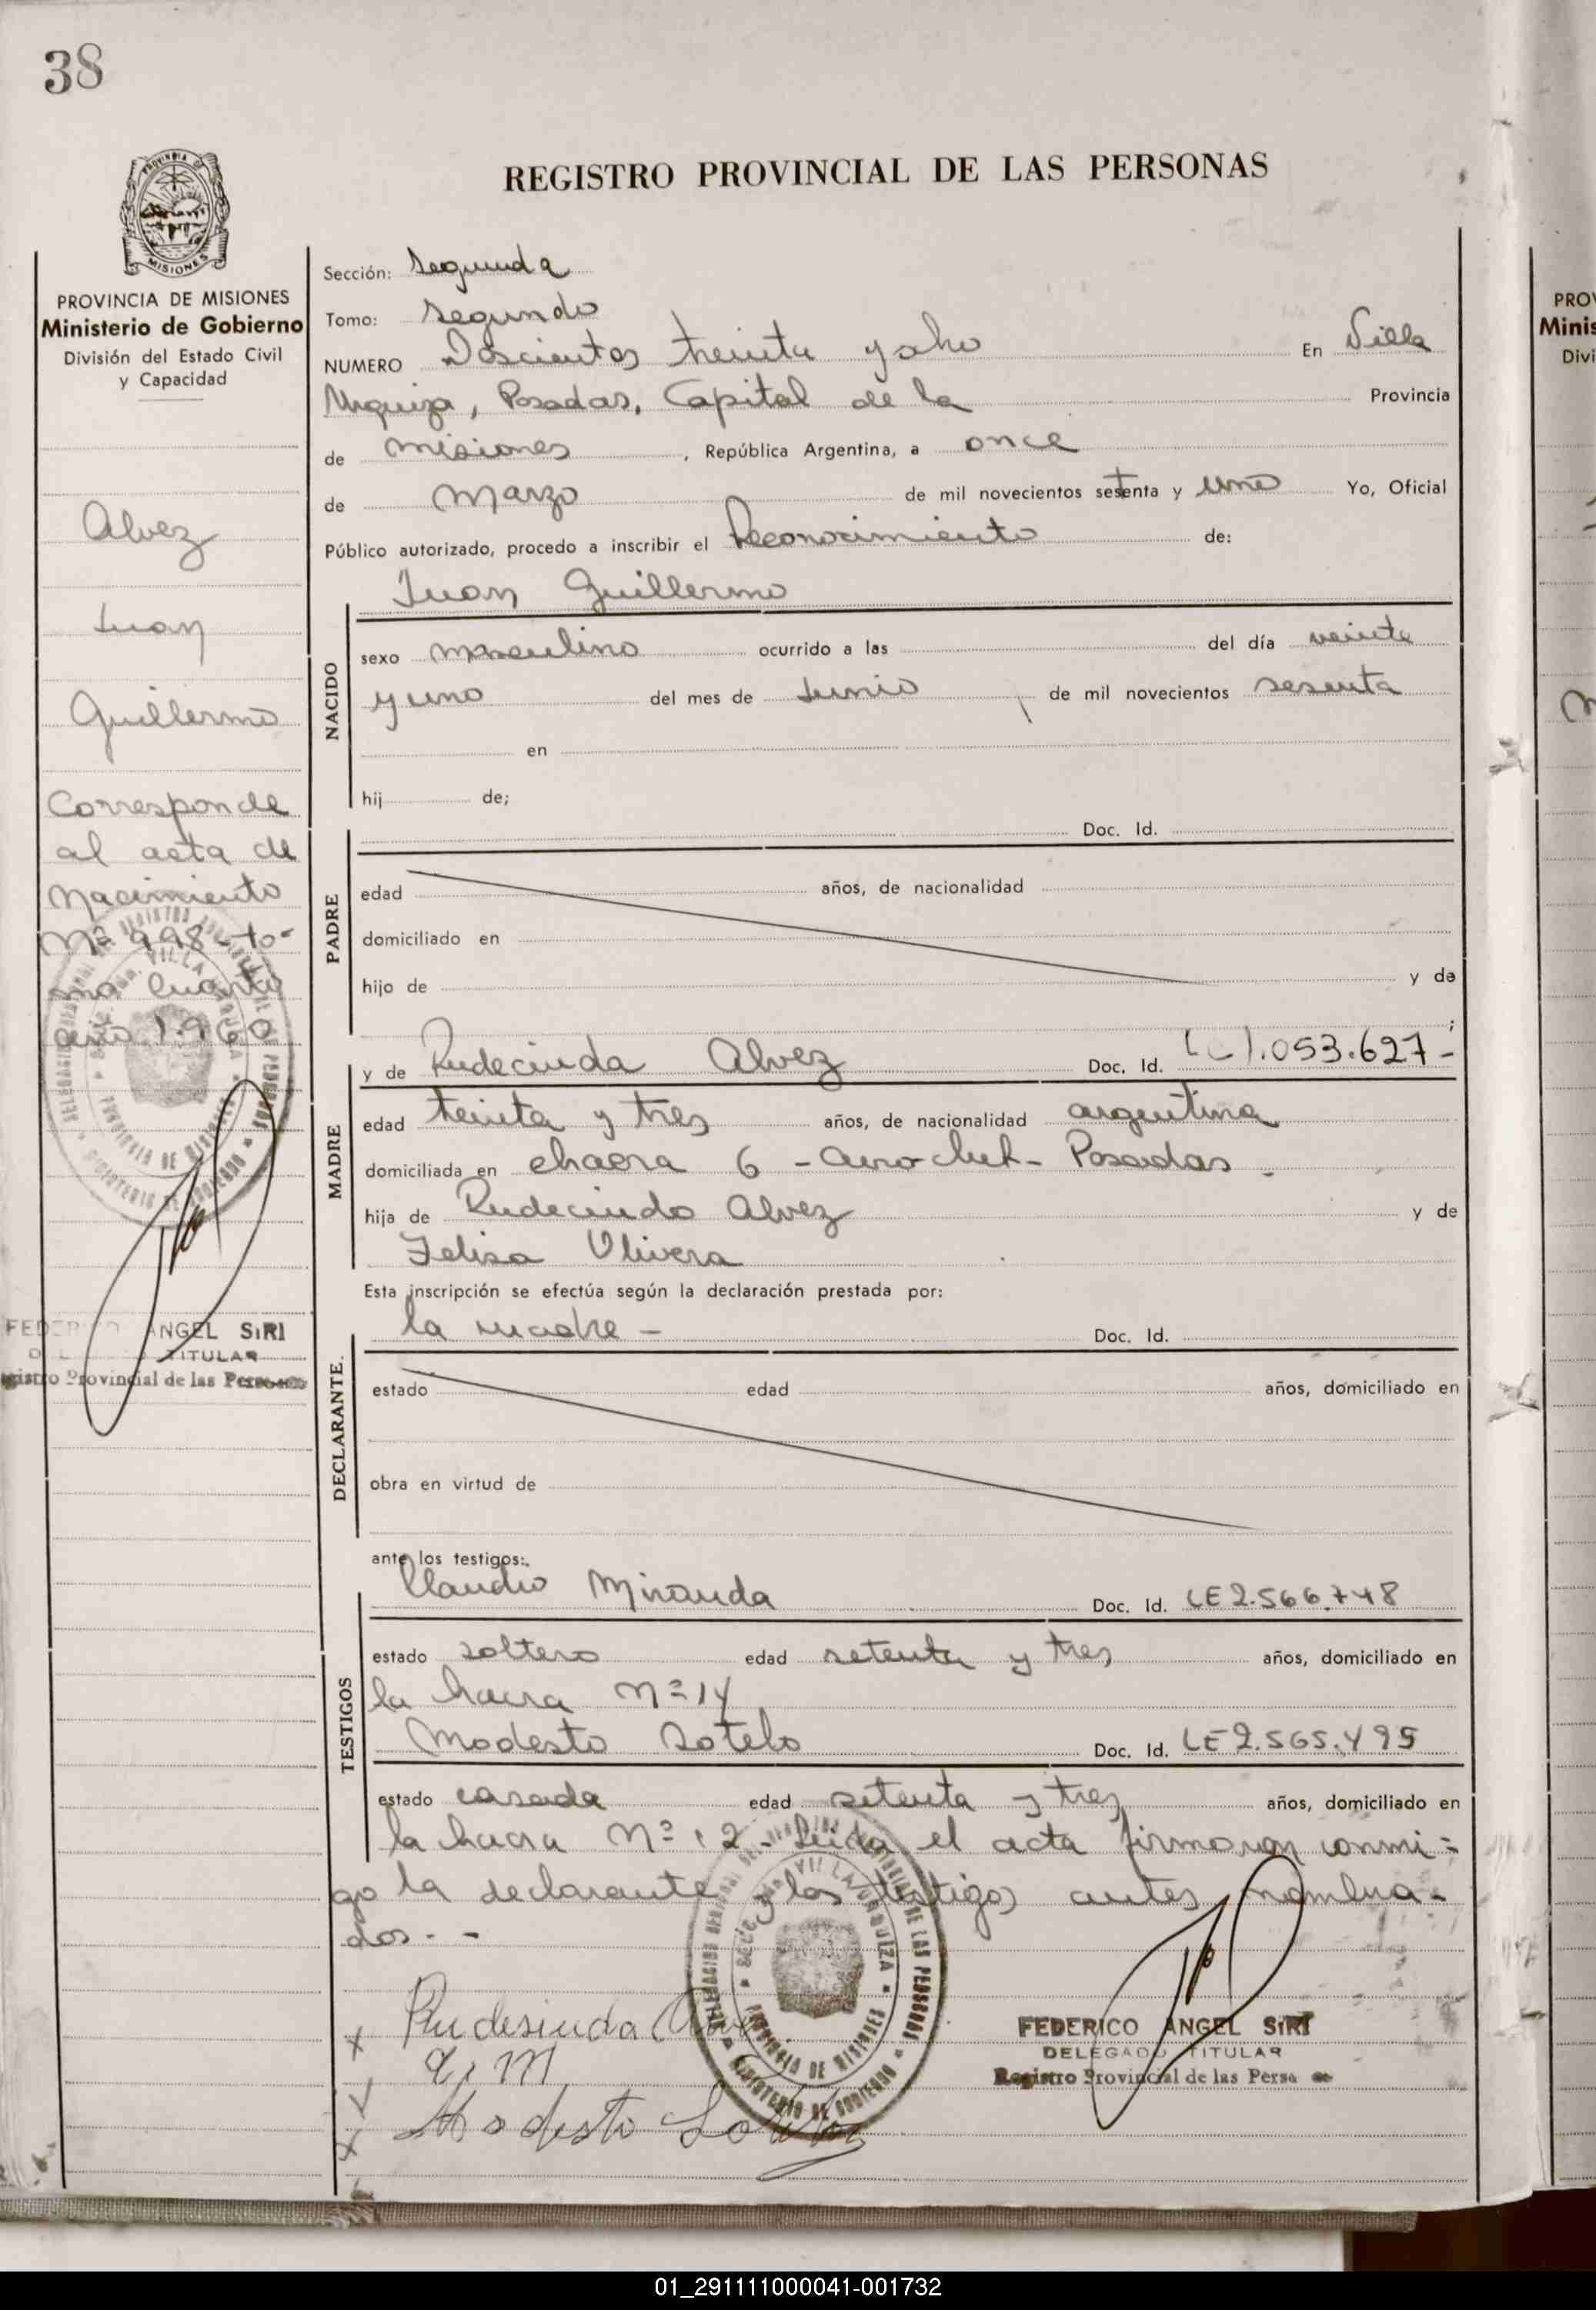 38
REGISTRO PROVINCIAL DE LAS PERSONAS
PROVINCIA DE MISIONES
Ministerio de Gobierno
División del Estado Civil
y Capacidad
Alvez
Juan
Guillermo
Corresponde
al acta de
Nacimiento
Nº 998 - to-
mo Cuarto
año 1.960
FEDERICO ANGEL SIRI
TITULAR
Registro Provincial de las Personas
Sección: Segunda
Tomo: Segundo
NUMERO Doscientos treinta y ocho En Villa
Urquiza, Posadas, Capital de la Provincia
de Misiones, República Argentina, a once
de Marzo de mil novecientos setenta y uno Yo, Oficial
Público autorizado, procedo a inscribir el Reconocimiento de:
Juan Guillermo
NACIDO
sexo Masculino ocurrido a las del día veinte
y uno del mes de Junio de mil novecientos sesenta
en
hij de;
Doc. Id.
PADRE
edad años, de nacionalidad
domiciliado en
hijo de y de
;
y de Rudecinda Alvez Doc. Id. LC 1.053.627-
MADRE
edad treinta y tres años, de nacionalidad argentina
domiciliada en chacra 6 - Aero Club - Posadas -
hija de Rudecindo Alvez y de
Felisa Olivera
Esta inscripción se efectúa según la declaración prestada por:
la madre - Doc. Id.
DECLARANTE.
estado edad años, domiciliado en
obra en virtud de
ante los testigos:
Claudio Miranda Doc. Id. LE 2.566.748
TESTIGOS
estado soltero edad setenta y tres años, domiciliado en
la hacra Nº 14
Modesto Sotelo Doc. Id. LE 2.565.495
estado casada edad setenta y tres años, domiciliado en
la hacra Nº 12 - Leida el acta firmaron conmi=
go la declarante y los testigos antes nombra-
dos. -
x Rudesinda
Modesto Sotelo
FEDERICO ANGEL SIRI
DELEGADO TITULAR
Registro Provincial de las Persa
01_291111000041-001732